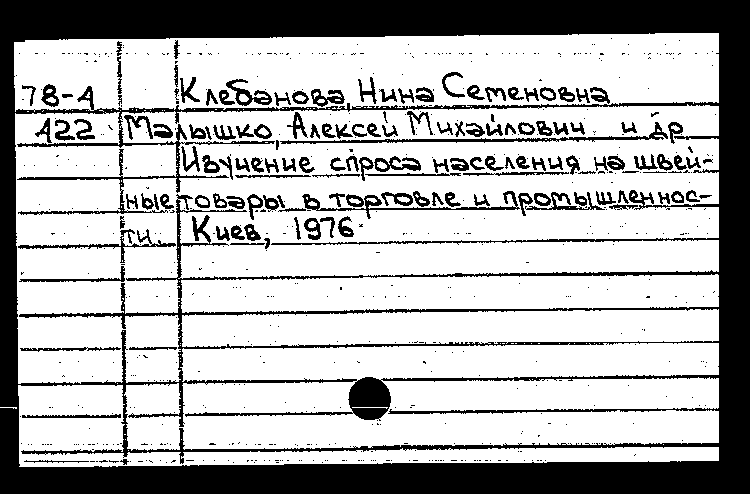 78-4 Клебанова, Нина Семеновна
422 Малышко, Алексей Михайлович и др
Изучение спроса населения на швей-
ные товары в торговле и промышленнос-
ти. Киев, 1976.